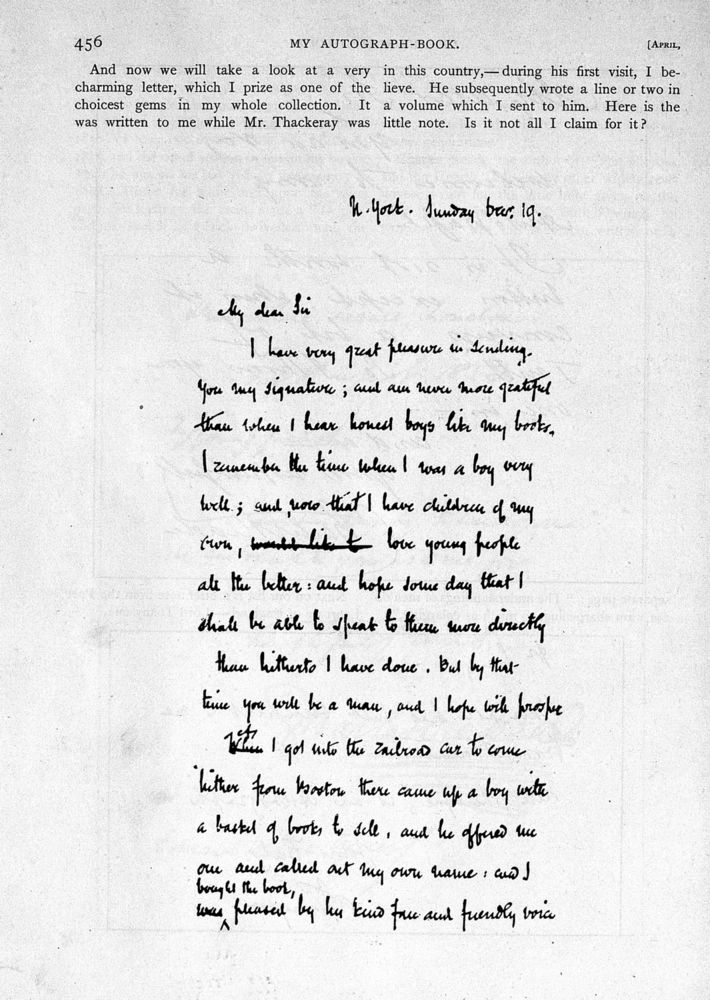 456
MY AUTOGRAPH-BOOK.
[APRIL,
And now we will take a look at a very
charming letter, which I prize as one of the
choicest gems in my whole collection. It
was written to me while Mr. Thackeray was
in this country,— during his first visit, I be-
lieve. He subsequently wrote a line or two in
a volume which I sent to him. Here is the
little note. Is it not all I claim for it?
N. York. Sunday Dec. 19.
My dear Sir
I have very great pleasure in sending
you my signature; and am never more grateful
than when I hear honest boys like my books.
I remember the time when I was a boy very
well; and now that I have children of my
own, would like t love young people
all the better: and hope some day that I
shall be able to speak to them more directly
than hitherto I have done. But by that
time you will be a man, and I hope will prosper
When as I got into the railroad car to come
hither from Boston there came up a boy with
a basket of books to sell, and he offered me
one and called out my own name: and I
bought the book,
was pleased by his kind face and friendly voice